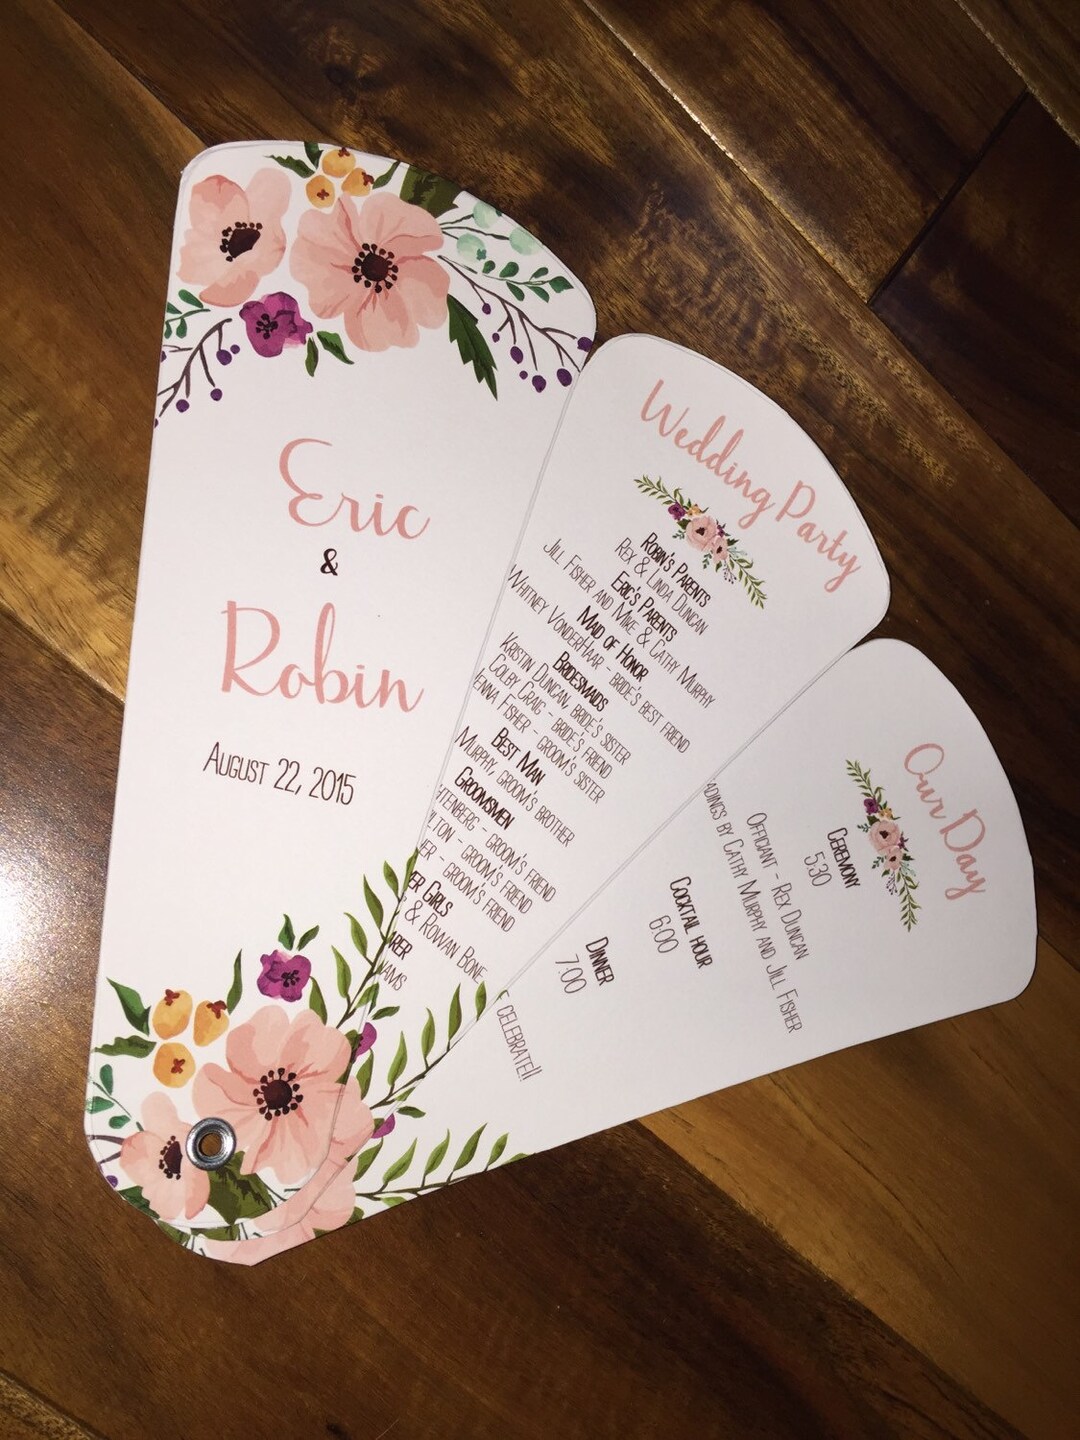 Eric
&
Robin
August 22, 2015
Wedding Party
Robin's Parents
Rex & Linda Duncan
Eric's Parents
Jill Fisher and Mike & Cathy Murphy
Maid of Honor
Whitney VonderHaar - bride's best friend
Bridesmaids
Kristin Duncan, bride's sister
Colby Craig - bride's friend
Fisher - groom's sister
Best Man
Murphy, groom's brother
Groomsmen
- groom's friend
- groom's friend
- groom's friend
Girls
& Rowan Bone
Our Day
Ceremony
5:30
Officiant - Rex Duncan
by Cathy Murphy and Jill Fisher
Cocktail hour
6:00
Dinner
7:00
celebrate!!